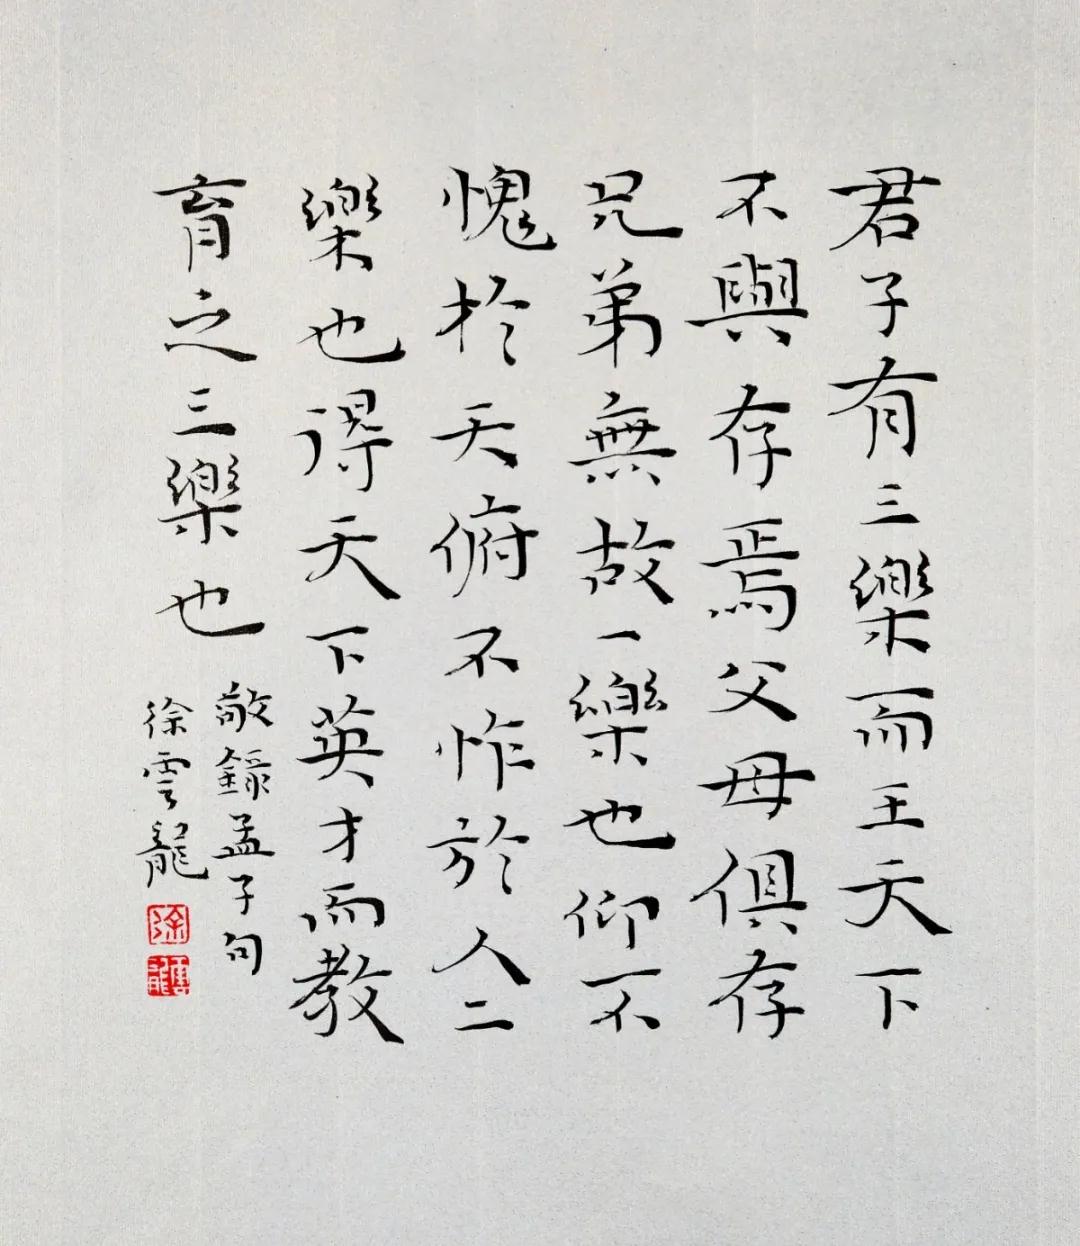 君子有三樂而王天下
不與存焉父母俱存
兄弟無故一樂也仰不
愧於天俯不怍於人二
樂也得天下英才而教
育之三樂也
敬錄孟子句
徐雲龍
徐
雲龍